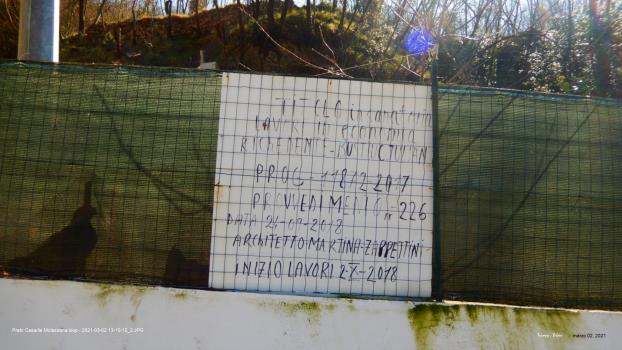 TITOLO in sanatoria
LAVORI in economia
RICHIEDENTE
PROG - 11812 2017
PROVVEDIMENTO n 226
DATA 21-09-2018
ARCHITETTO MARTINA ZAPPETTINI
INIZIO LAVORI 2-X-2018
Prato Casarile Molassana loop - 2021-03-02 13-10-12_2.JPG
marzo 02, 2021